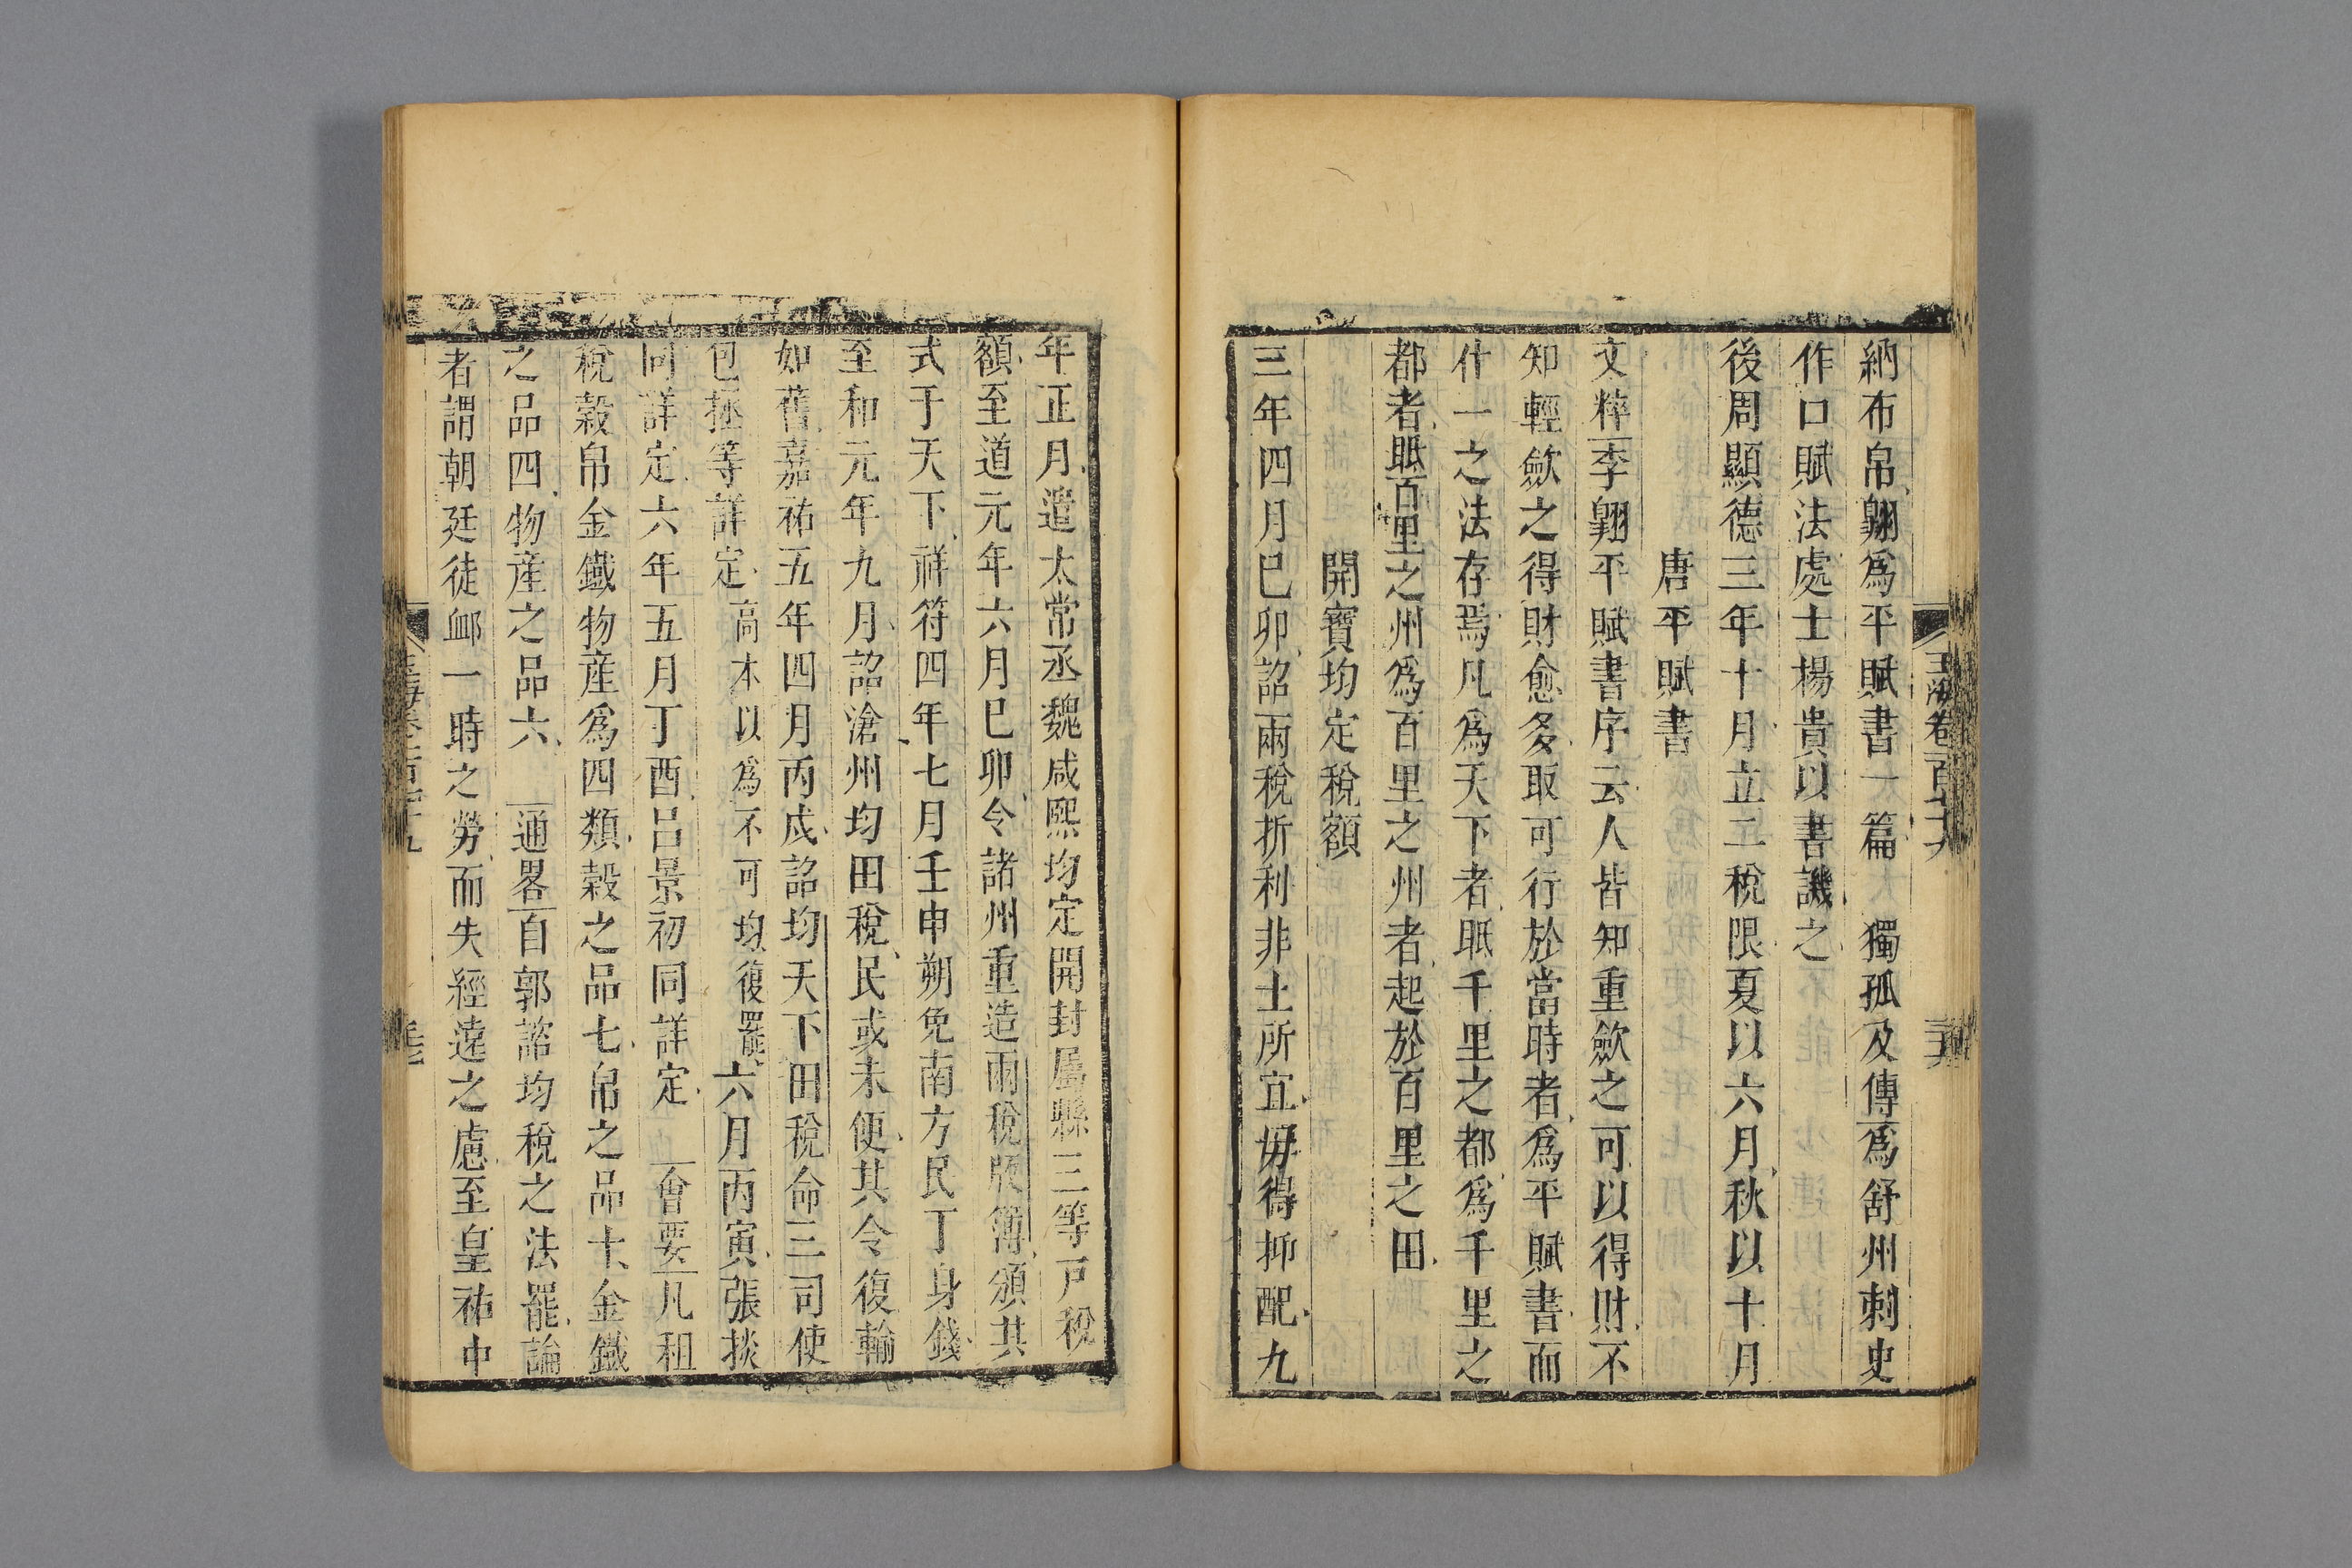 納布帛翺爲平賦書一篇 獨孤及傳爲舒州刺史
作口賦法處士楊貴以書譏之
後周顯德三年十月立二稅限夏以六月秋以十月
唐平賦書
文粹李翺平賦書序云人皆知重歛之可以得財不
知輕歛之得財愈多取可行於當時者爲平賦書而
什一之法存焉凡爲天下者眡千里之都爲千里之
都者眡百里之州爲百里之州者起於百里之田
開寶均定稅額
三年四月巳卯詔兩稅折利非土所宜毋得抑配九
年正月遣太常丞魏咸熙均定開封屬縣三等戸稅
額至道元年六月巳卯令諸州重造兩稅版簿頒其
式于天下祥符四年七月壬申朔免南方民丁身錢
至和元年九月詔滄州均田稅民或未便其令復輸
如舊嘉祐五年四月丙戌詔均天下田稅命三司使
包拯等詳定高本以爲不可均復罷六月丙寅張掞
同詳定六年五月丁酉吕景初同詳定 會要凡租
稅穀帛金鐵物産爲四類穀之品七帛之品十金鐵
之品四物産之品六 通畧自郭諮均稅之法罷論
者謂朝廷徒卹一時之勞而失經遠之慮至皇祐中